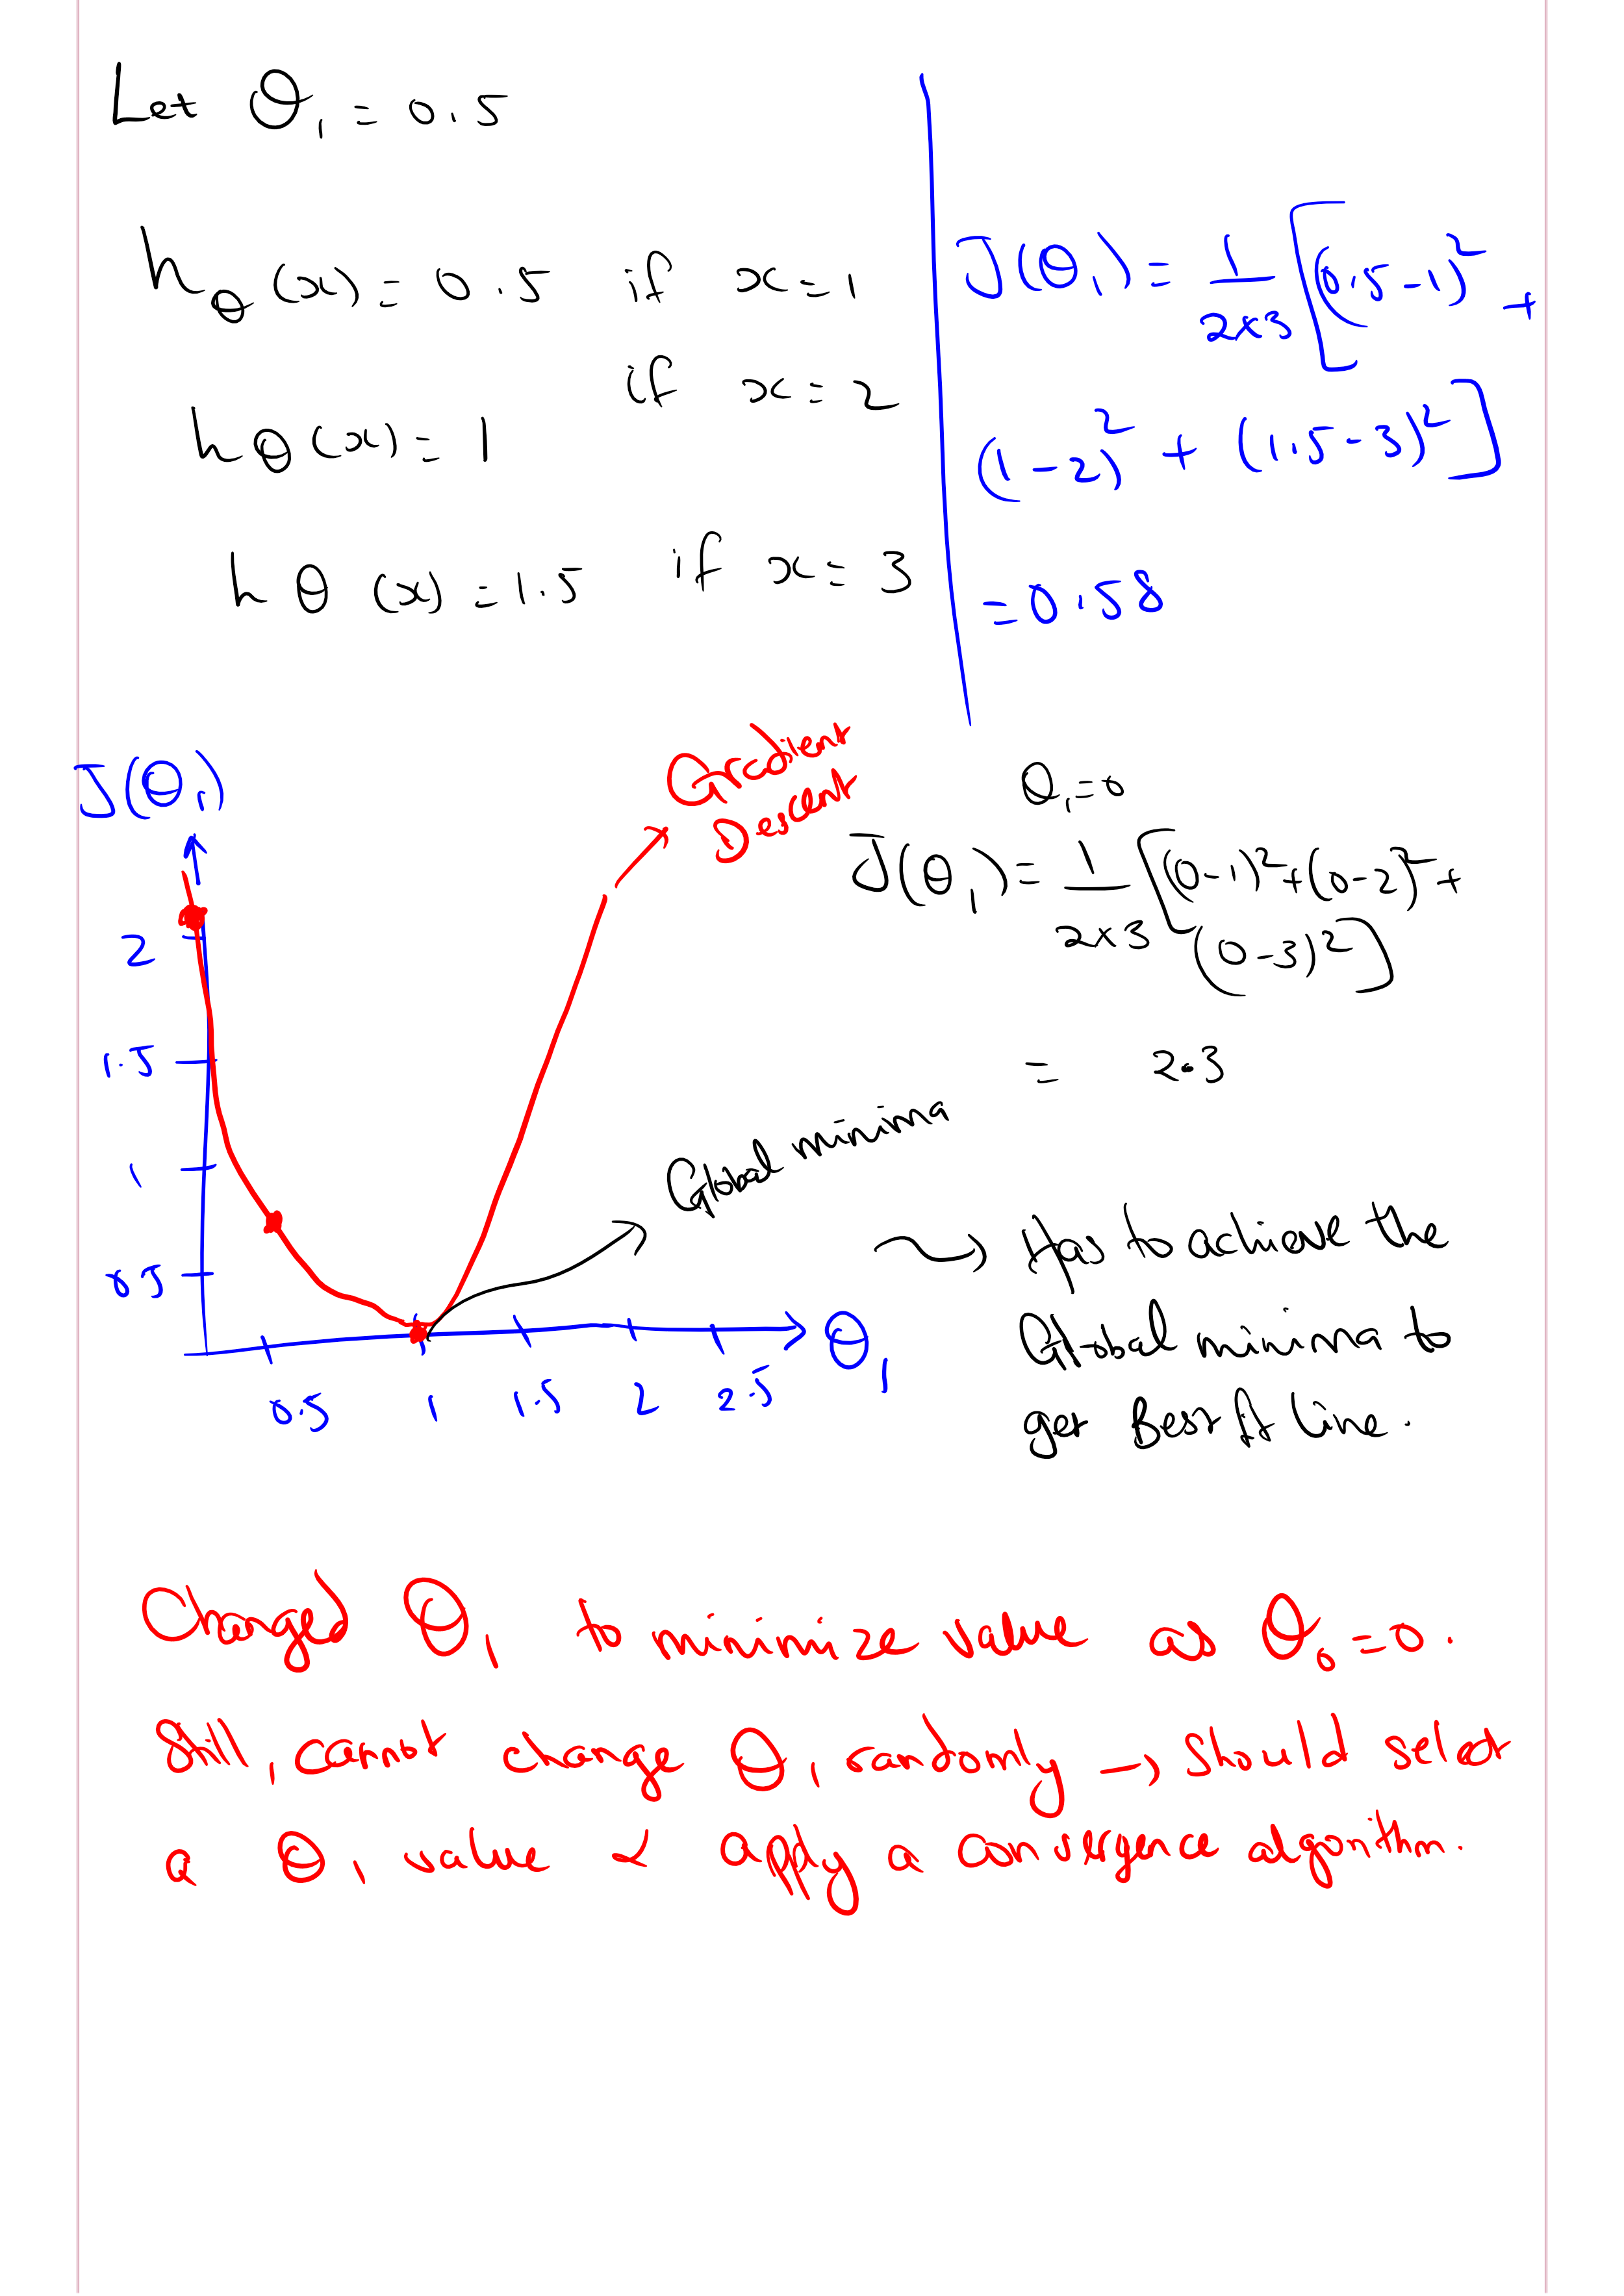 Let θ₁ = 0.5
hθ(x) = 0.5 if x=1
hθ(x) = 1 if x=2
hθ(x) = 1.5 if x=3
J(θ₁) = 1/2×3 [(0.5-1)² +
(1-2)² + (1.5-3)²]
= 0.58
J(θ₁)
2
1.5
1
0.5
0.5 1 1.5 2 2.5
θ₁
Gradient
Descent
Global minima
θ₁=0
J(θ₁) = 1/2×3 [(0-1)²+(0-2)²+
(0-3)²]
= 2.3
→ Has to achieve the
Global minima to
get Best fit line.
Changed θ₁ to minimize value as θ₀=0.
Still, cannot change θ₁ randomly → should select
a θ₁ value & apply a convergence algorithm.